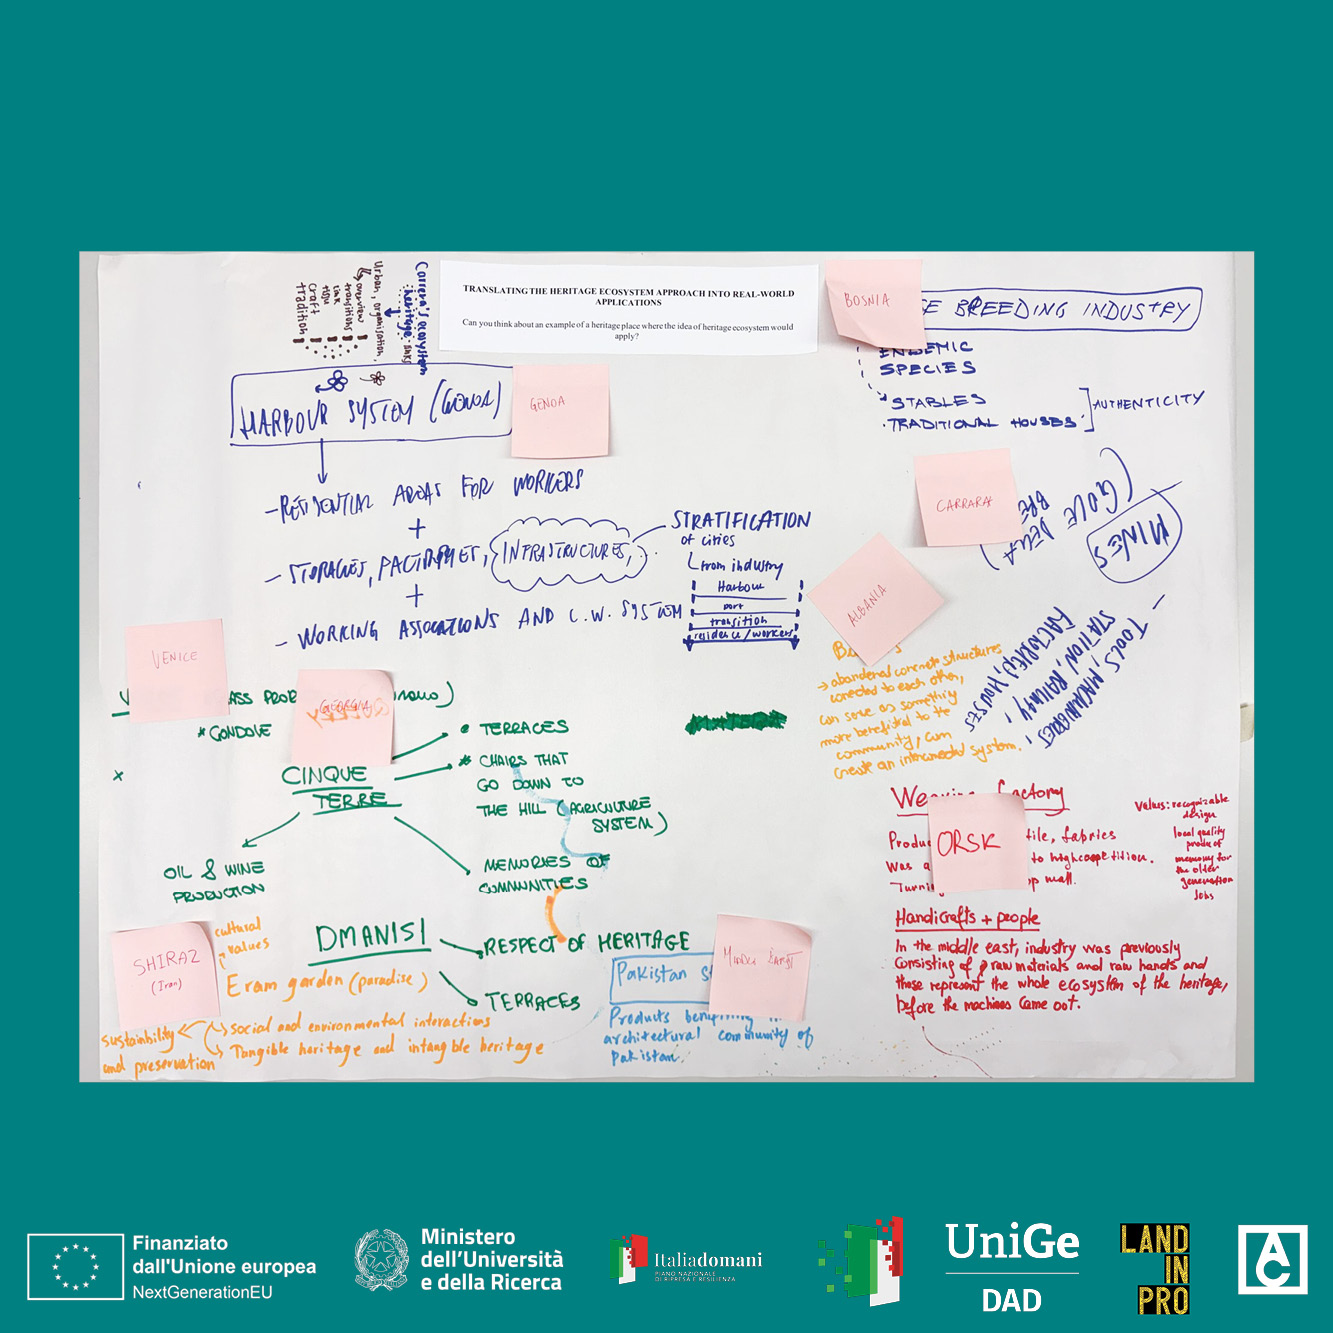 TRANSLATING THE HERITAGE ECOSYSTEM APPROACH INTO REAL-WORLD
APPLICATIONS
Can you think about an example of a heritage place where the idea of heritage ecosystem would
apply?
Carrara's ecosystem
heritage
Urban, organisation,
overview
transitions
craft
tradition
HARBOUR SYSTEM (GENOA)
GENOA
- RESIDENTIAL AREAS FOR WORKERS
+
- STORAGES, INFRASTRUCTURES,
+
- WORKING ASSOCIATIONS AND C.W. SYSTEM
STRATIFICATION
of cities
from industry
Harbour
port
transition
residence/workers
BOSNIA
BREEDING INDUSTRY
ENDEMIC
SPECIES
STABLES
TRADITIONAL HOUSES
AUTHENTICITY
CARRARA
MINES
(GOLE
DELLA
TOOLS, MACHINERIES,
STATION, RAILWAY,
FACTORIES, HOUSES
ALBANIA
→ abandoned concrete structures
conected to each other,
can serve as something
more beneficial to the
community, can
create an interconected system.
VENICE
GEORGIA
* GONDOLE
CINQUE
TERRE
• TERRACES
* CHAIRS THAT
GO DOWN TO
THE HILL (AGRICULTURE
SYSTEM)
OIL & WINE
PRODUCTION
MEMORIES OF
COMMUNITIES
DMANISI
RESPECT OF HERITAGE
TERRACES
SHIRAZ
(Iran)
cultural
values
Eram garden (paradise)
Social and environmental interactions
Tangible heritage and intangible heritage
sustainability
and preservation
MIDDLE EAST
Pakistan
Products
architectural community of
Pakistan.
ORSK
factory
fabrics
Was a to high
mall.
Values: recognizable
design
local quality
product
memory for
the older
generation
Jobs
Handicrafts + people
In the middle east, industry was previously
consisting of raw materials and raw hands and
these represent the whole ecosystem of the heritage,
before the machines came out.
Finanziato
dall'Unione europea
NextGenerationEU
Ministero
dell'Università
e della Ricerca
Italiadomani
PIANO NAZIONALE
DI RIPRESA E RESILIENZA
UniGe
DAD
LAND
IN
PRO
AC